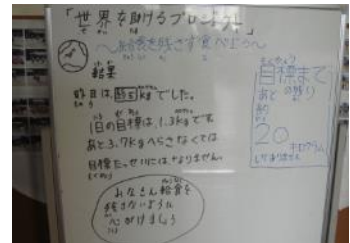 「世界を助けるプロジェクト」
〜給食を残さず食べよう〜
結果
昨日は、約5kgでした。
1日の目標は、1.3kgです。
あと3.7kgへらさなくては
目標たっせいにはなりません。
みなさん給食を
残さないように
心がけましょう
目標まで
あと の残り
約
20
キログラム